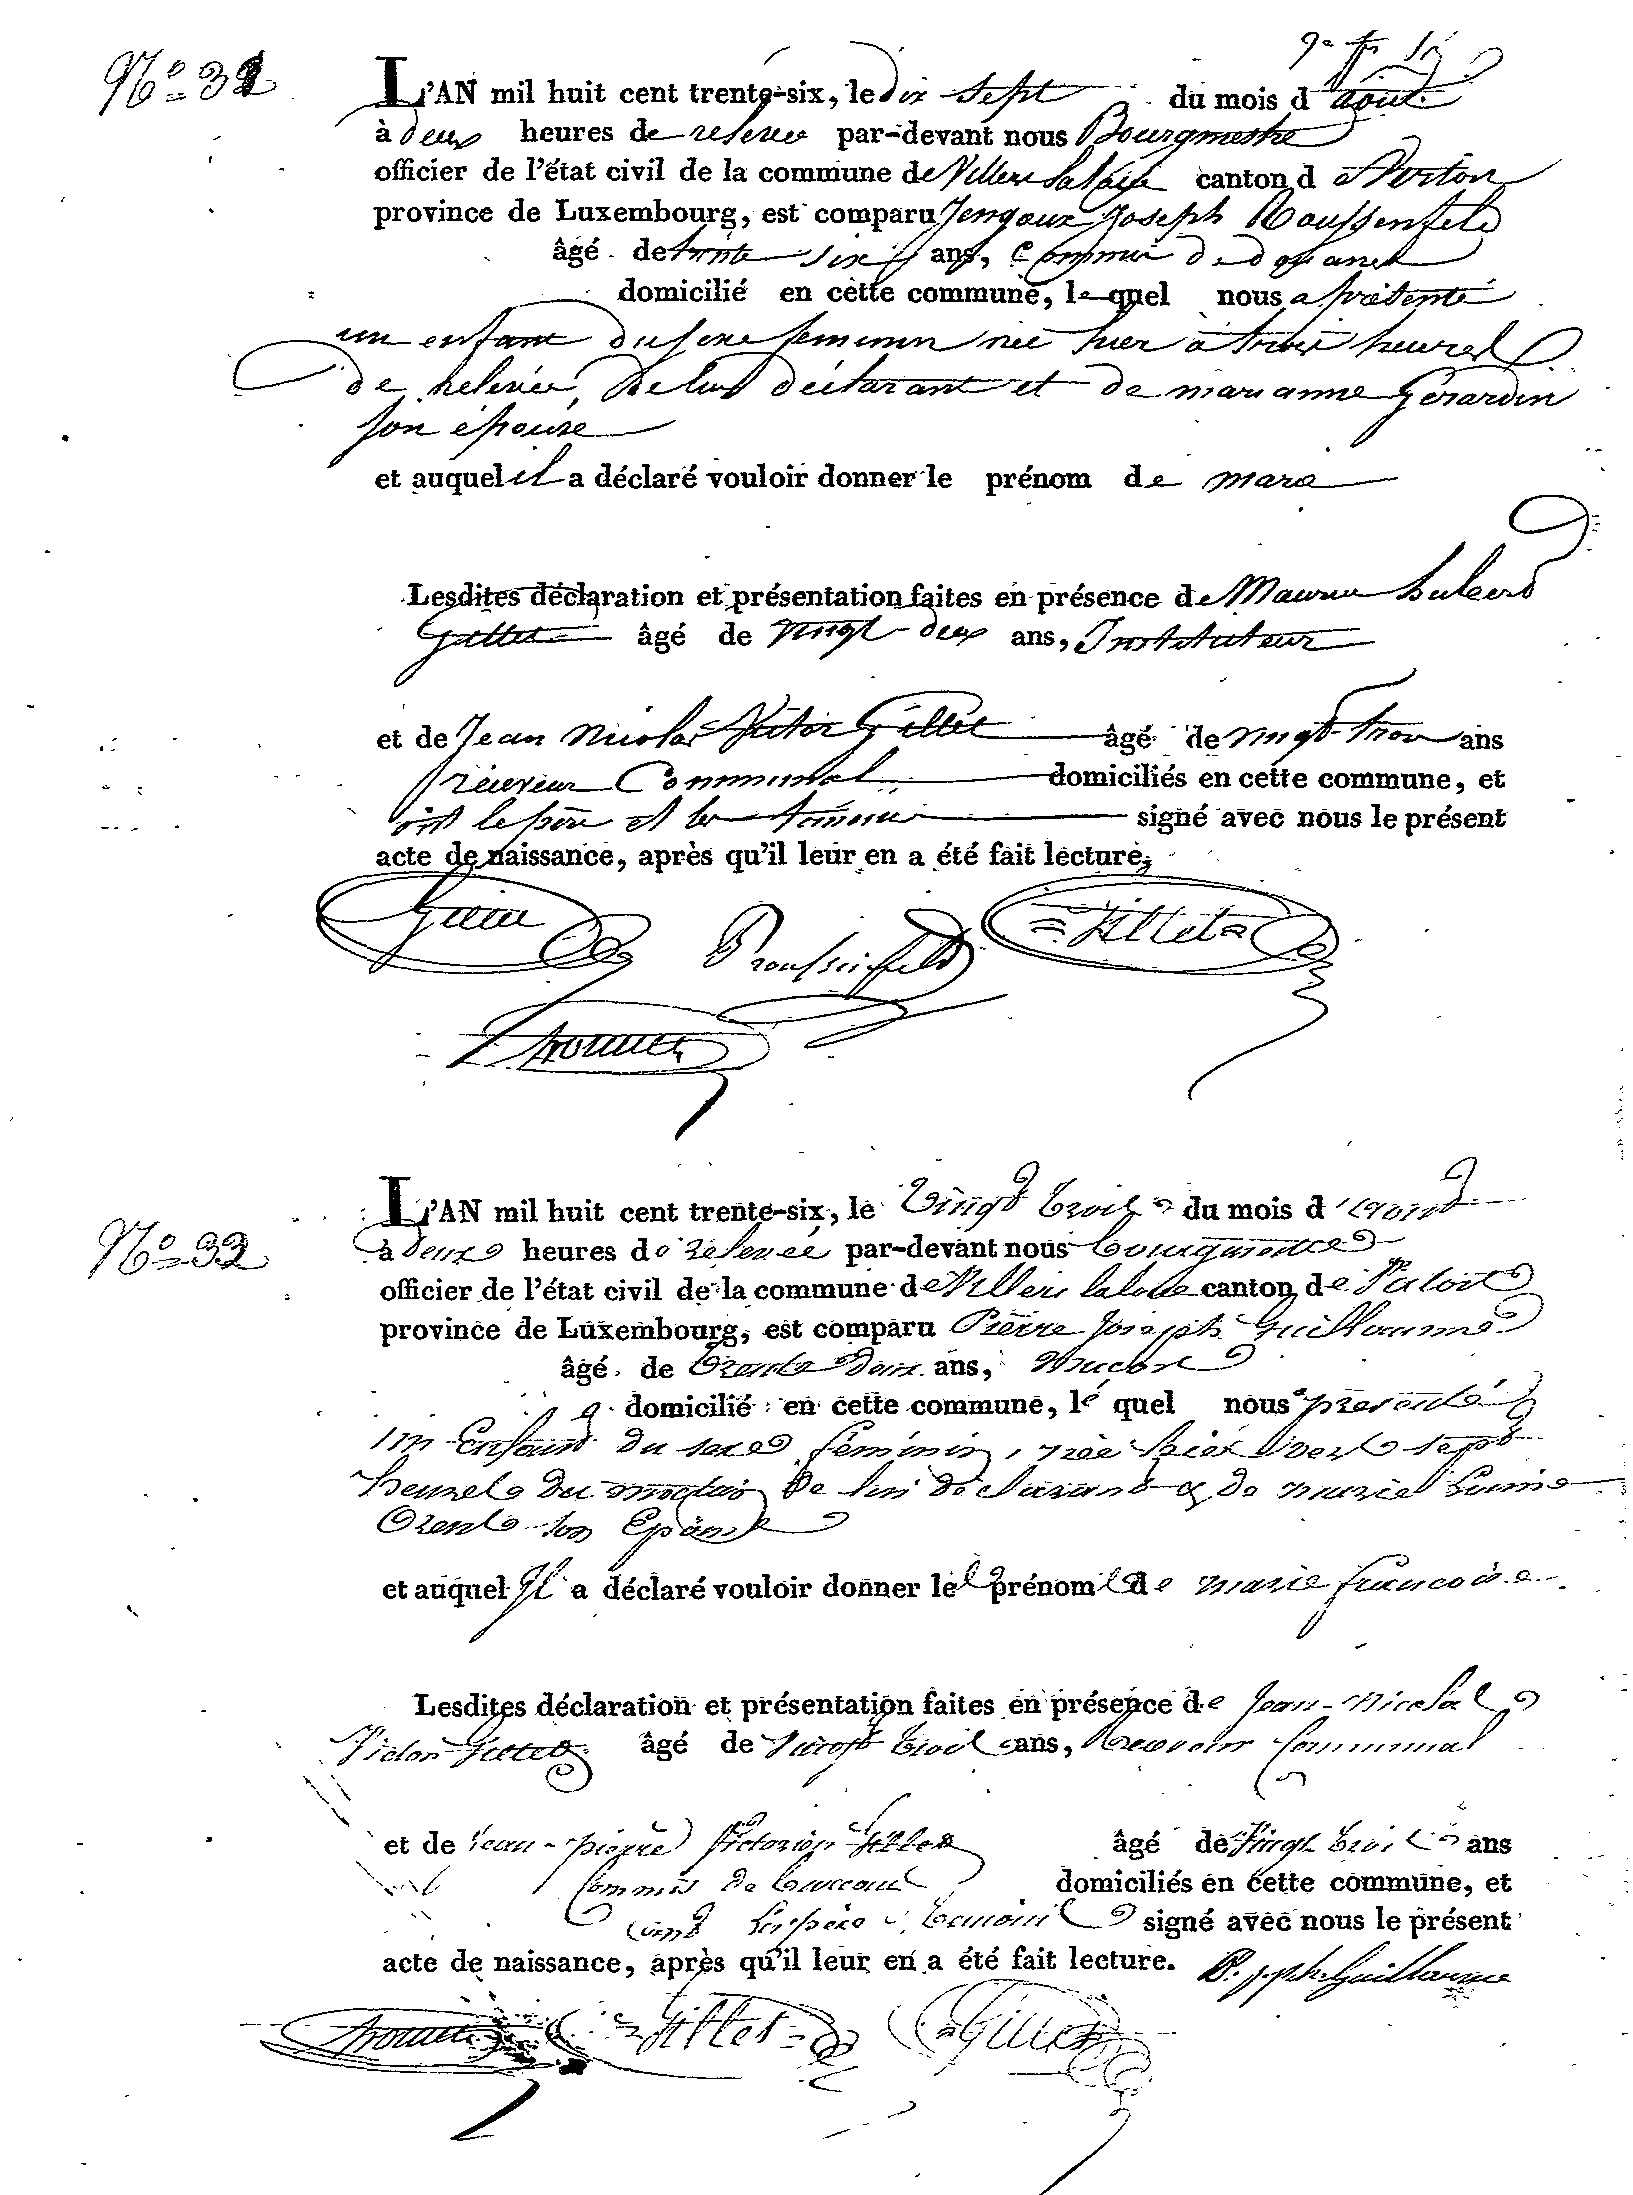 N° 31
L'AN mil huit cent trente-six, le dix sept du mois d'août
à deux heures de relevée par-devant nous Bourgmestre
officier de l'état civil de la commune de Villers la loue canton d Virton
province de Luxembourg, est comparu Joseph Roussenfeld
âgé de trente six ans, Commis de douanes
domicilié en cette commune, lequel nous a présenté
un enfant du sexe feminin née hier à trois heures
de relevée, de lui déclarant et de marianne Gerardin
son épouse
et auquel il a déclaré vouloir donner le prénom de
Lesdites déclaration et présentation faites en présence de
Gillet âgé de vingt-deux ans, Instituteur
et de Jean Nicolas Victor Gillet âgé de vingt-trois ans
receveur Communal domiciliés en cette commune, et
ont le père et les témoins signé avec nous le présent
acte de naissance, après qu'il leur en a été fait lecture,
Gillet
Roussenfeld
Gillet
N° 32
L'AN mil huit cent trente-six, le vingt trois du mois d'août
à deux heures de relevée par-devant nous bourgmestre
officier de l'état civil de la commune de Villers laloue canton de Virton
province de Luxembourg, est comparu Pierre Joseph Guillaume
âgé de trente deux ans,
domicilié en cette commune, lé quel nous a présenté
un Enfant du sexe féminin, née hier vers sept
heures du matin de lui déclarant & de marie
son Epouse
et auquel Il a déclaré vouloir donner les prénoms de marie francoise
Lesdites déclaration et présentation faites en présence de Jean-Nicolas
Victor Gillet âgé de vingt trois ans, Receveur Communal
et de Jean-pierre Victorien Gillet âgé de vingt trois ans
Commis de bureau domiciliés en cette commune, et
ont les père & témoins signé avec nous le présent
acte de naissance, après qu'il leur en a été fait lecture.
P. jph. Guillaume
Gillet Gillet